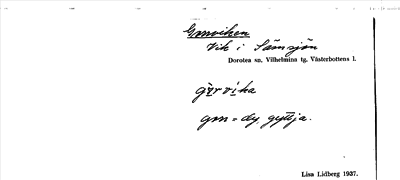 Gmviken
Vik i Sämsjön
Dorotea sn, Vilhelmina tg. Västerbottens l.
gm = dy, gyttja.
Lisa Lidberg 1937.